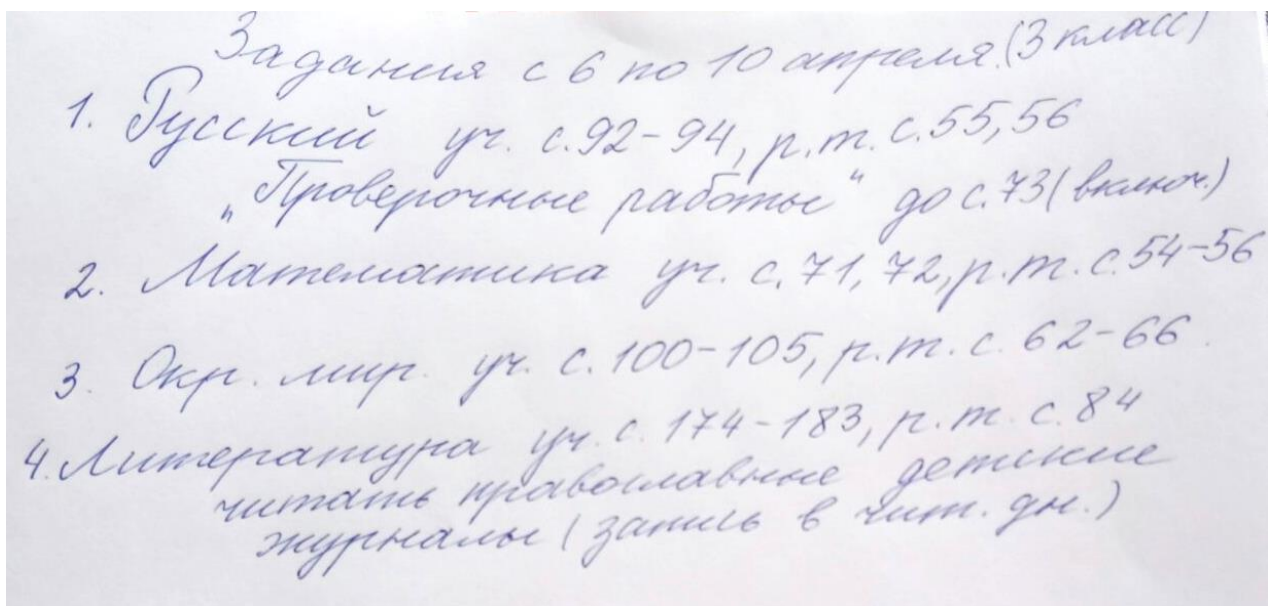 Задания с 6 по 10 апреля. (3 класс)
1. Русский уч. с. 92-94, р.т. с. 55, 56
„Проверочные работы“ до с. 73 (включ.)
2. Математика уч. с. 71, 72, р.т. с. 54-56
3. Окр. мир. уч. с. 100-105, р.т. с. 62-66.
4. Литература уч. с. 174-183, р.т. с. 84
читать православные детские
журналы (запись в чит. дн.)